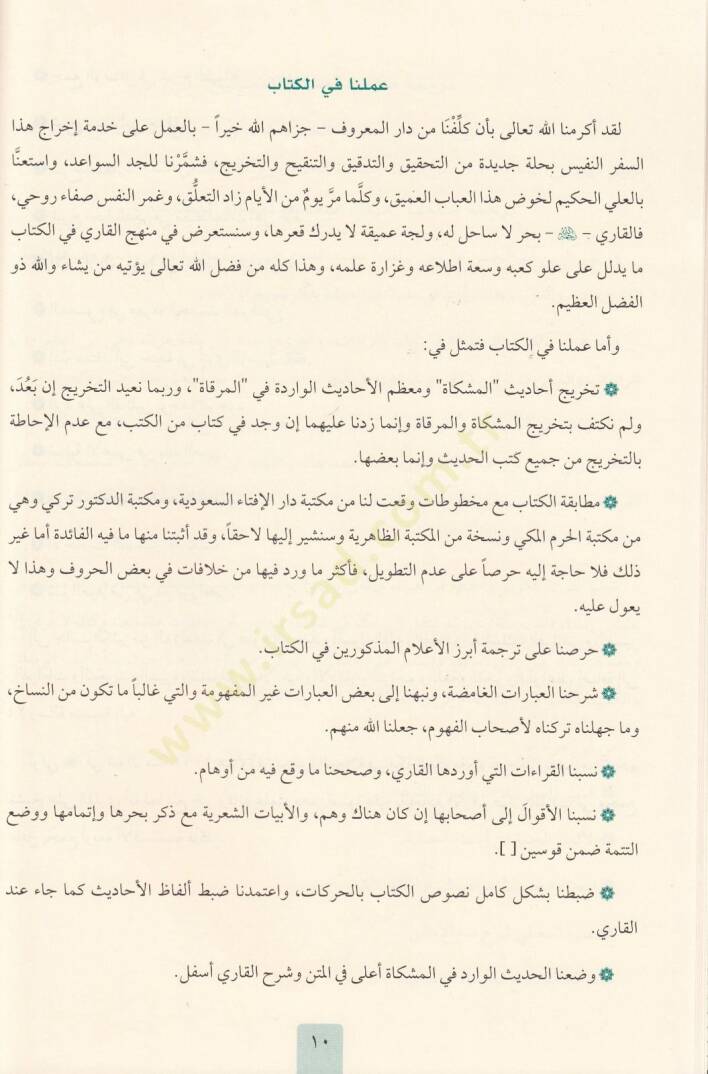 عملنا في الكتاب
لقد أكرمنا الله تعالى بأن كلِّفْنَا من دار المعروف – جزاهم الله خيراً – بالعمل على خدمة إخراج هذا
السفر النفيس بحلة جديدة من التحقيق والتدقيق والتنقيح والتخريج، فشمَّرْنا للجد السواعد، واستعنَّا
بالعلي الحكيم لخوض هذا العباب العميق، وكلَّما مرَّ يومٌ من الأيام زاد التعلُّق، وغمر النفس صفاء روحي،
فالقاري – – بحر لا ساحل له، ولجة عميقة لا يدرك قعرها، وسنستعرض في منهج القاري في الكتاب
ما يدلل على علو كعبه وسعة اطلاعه وغزارة علمه، وهذا كله من فضل الله تعالى يؤتيه من يشاء والله ذو
الفضل العظيم.
وأما عملنا في الكتاب فتمثل في:
تخريج أحاديث "المشكاة" ومعظم الأحاديث الواردة في "المرقاة"، وربما نعيد التخريج إن بَعُدَ،
ولم نكتف بتخريج المشكاة والمرقاة وإنما زدنا عليهما إن وجد في كتاب من الكتب، مع عدم الإحاطة
بالتخريج من جميع كتب الحديث وإنما بعضها.
مطابقة الكتاب مع مخطوطات وقعت لنا من مكتبة دار الإفتاء السعودية، ومكتبة الدكتور تركي وهي
من مكتبة الحرم المكي ونسخة من المكتبة الظاهرية وسنشير إليها لاحقاً، وقد أثبتنا منها ما فيه الفائدة أما غير
ذلك فلا حاجة إليه حرصاً على عدم التطويل، فأكثر ما ورد فيها من خلافات في بعض الحروف وهذا لا
يعول عليه.
حرصنا على ترجمة أبرز الأعلام المذكورين في الكتاب.
شرحنا العبارات الغامضة، ونبهنا إلى بعض العبارات غير المفهومة والتي غالباً ما تكون من النساخ،
وما جهلناه تركناه لأصحاب الفهوم، جعلنا الله منهم.
نسبنا القراءات التي أوردها القاري، وصححنا ما وقع فيه من أوهام.
نسبنا الأقوالَ إلى أصحابها إن كان هناك وهم، والأبيات الشعرية مع ذكر بحرها وإتمامها ووضع
التتمة ضمن قوسين [ ].
ضبطنا بشكل كامل نصوص الكتاب بالحركات، واعتمدنا ضبط ألفاظ الأحاديث كما جاء عند
القاري.
وضعنا الحديث الوارد في المشكاة أعلى في المتن وشرح القاري أسفل.
١٠